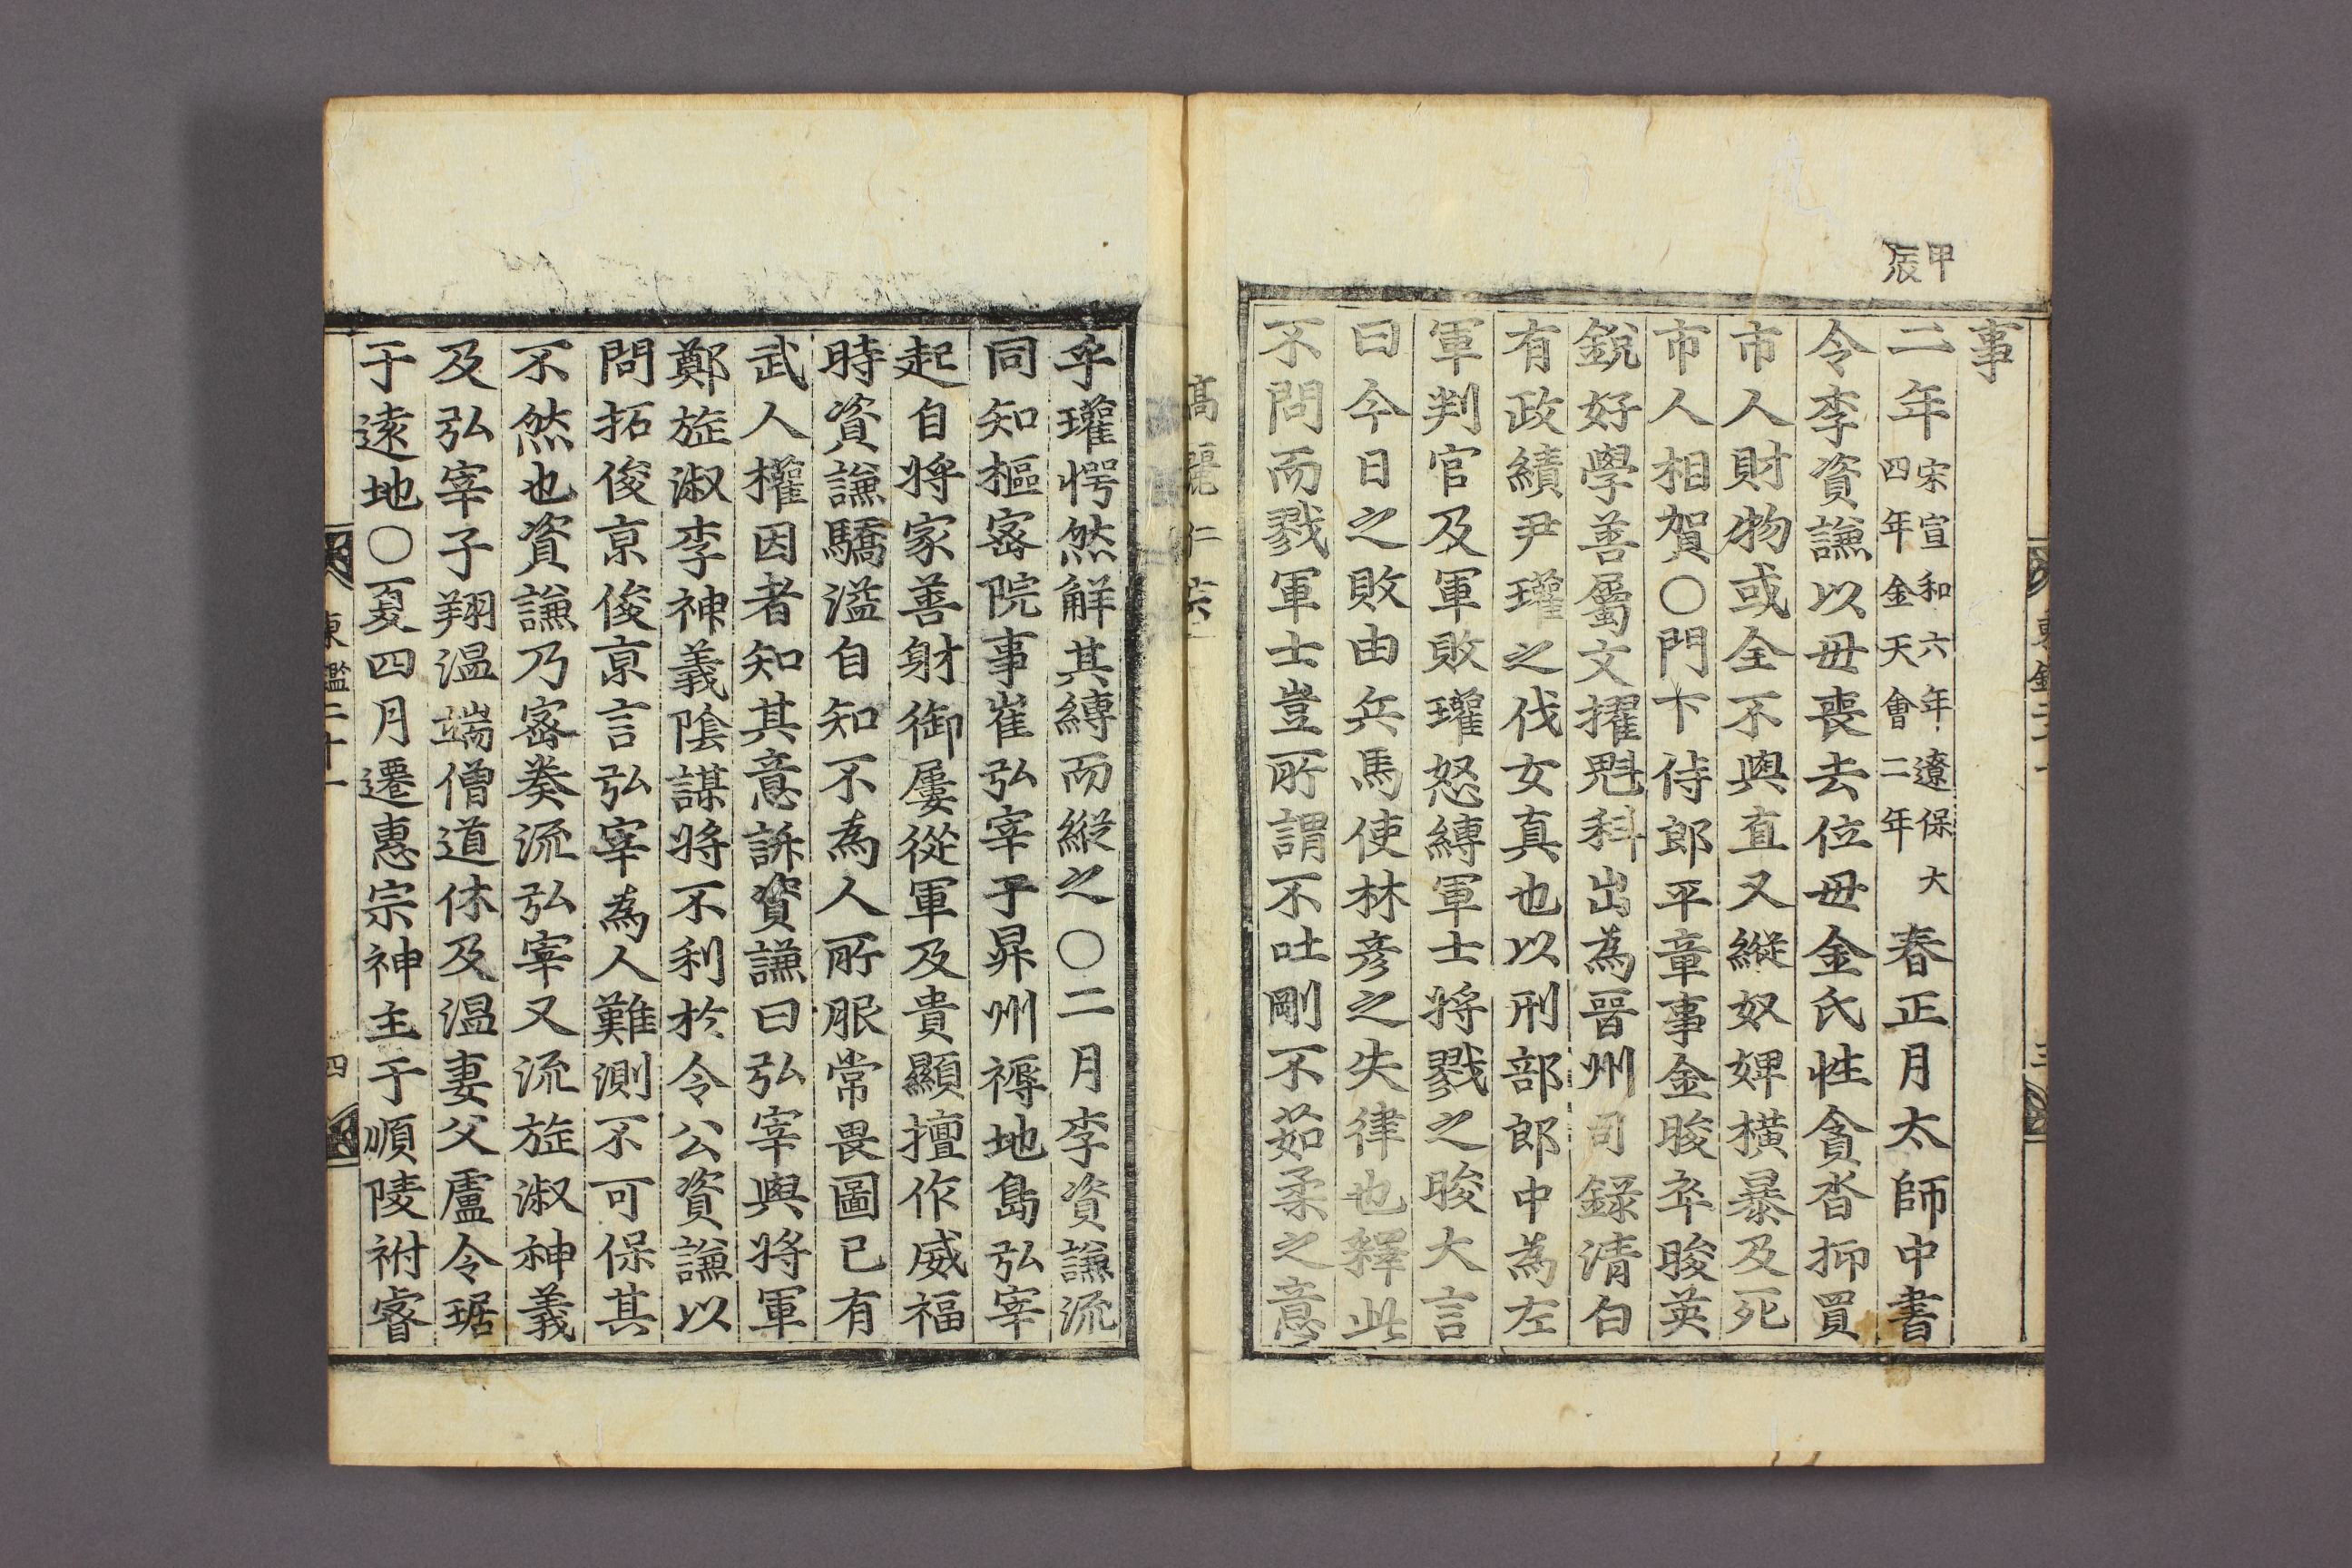 甲辰
事
二年宋宣和六年遼保大四年金天會二年春正月太師中書
令李資謙以毋喪去位毋金氏性貪沓抑買
市人財物或全不與直又縱奴婢橫暴及死
市人相賀○門下侍郎平章事金晙卒晙英
銳好學善屬文擢魁科出為晉州司錄清白
有政績尹瓘之伐女真也以刑部郎中為左
軍判官及軍敗瓘怒縛軍士將戮之晙大言
曰今日之敗由兵馬使林彦之失律也釋此
不問而戮軍士豈所謂不吐剛不茹柔之意
高麗仁宗
乎瓘愕然解其縛而縱之○二月李資謙流
同知樞密院事崔弘宰于昇州褥地島弘宰
起自將家善射御屢從軍及貴顯擅作威福
時資謙驕溢自知不為人所服常畏圖已有
武人權因者知其意訴資謙曰弘宰與將軍
鄭旋淑李神義陰謀將不利於令公資謙以
問拓俊京俊京言弘宰為人難測不可保其
不然也資謙乃密奏流弘宰又流旋淑神義
及弘宰子翔温端僧道休及温妻父盧令琚
于遠地○夏四月遷惠宗神主于順陵祔睿
東鑑二十一
四